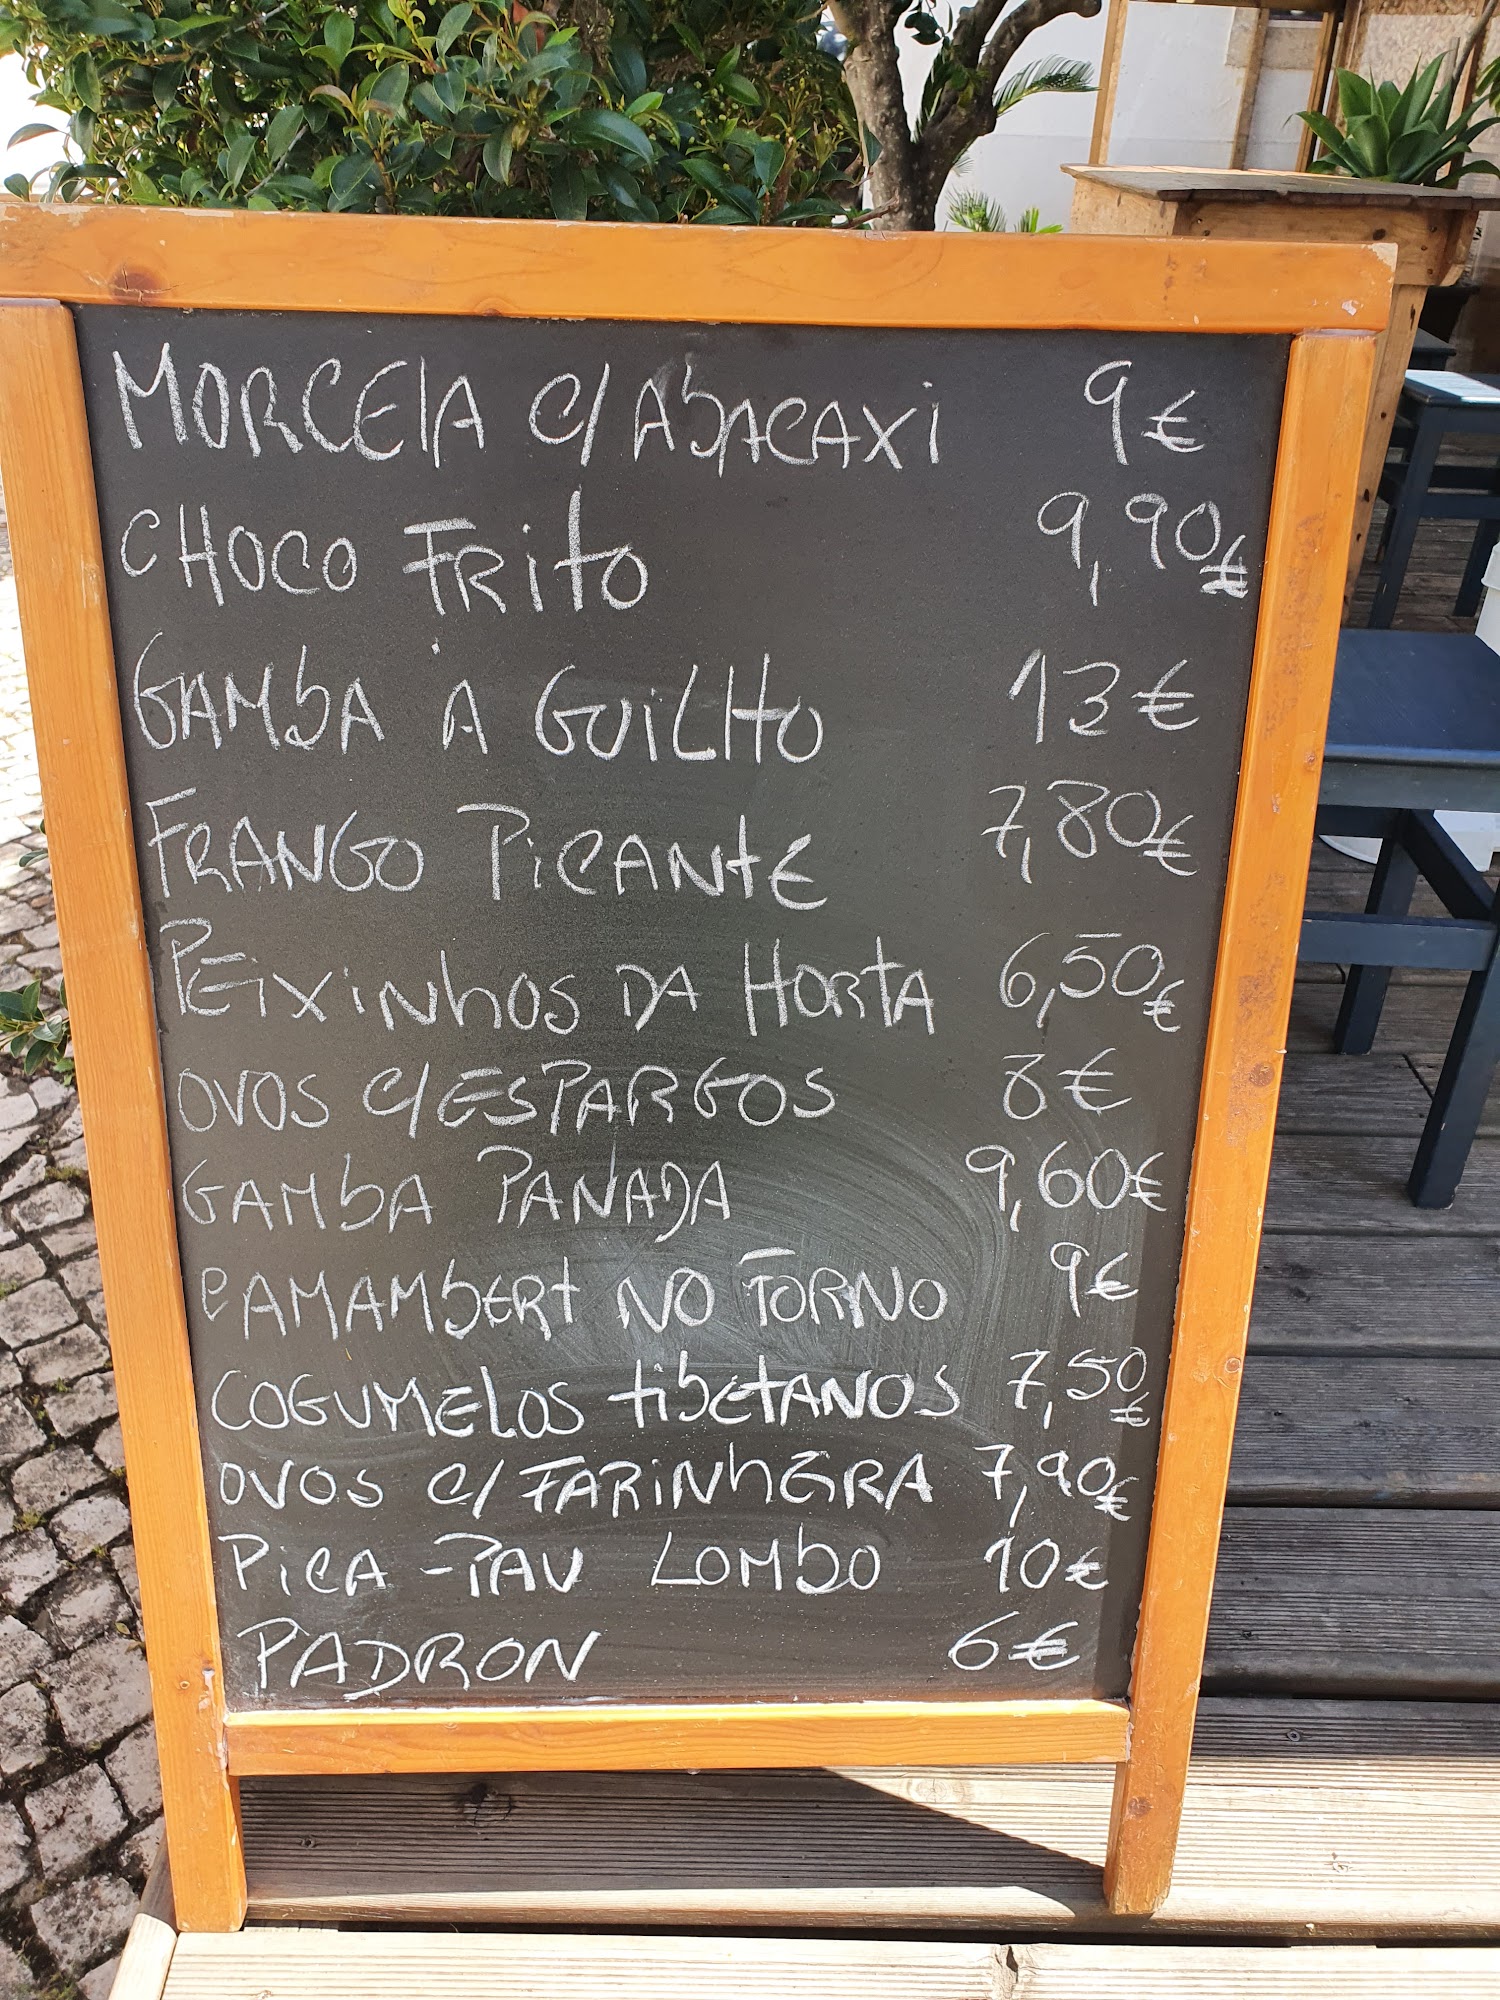 MORCELA C/ ABACAXI 9€
CHOCO FRITO 9,90€
GAMBA À GUILHO 13€
FRANGO PICANTE 7,80€
PEIXINHOS DA HORTA 6,50€
OVOS C/ ESPARGOS 8€
GAMBA PANADA 9,60€
CAMAMBERT NO TORNO 9€
COGUMELOS TIBETANOS 7,50€
OVOS C/ FARINHEIRA 7,90€
PICA-PAU LOMBO 10€
PADRON 6€